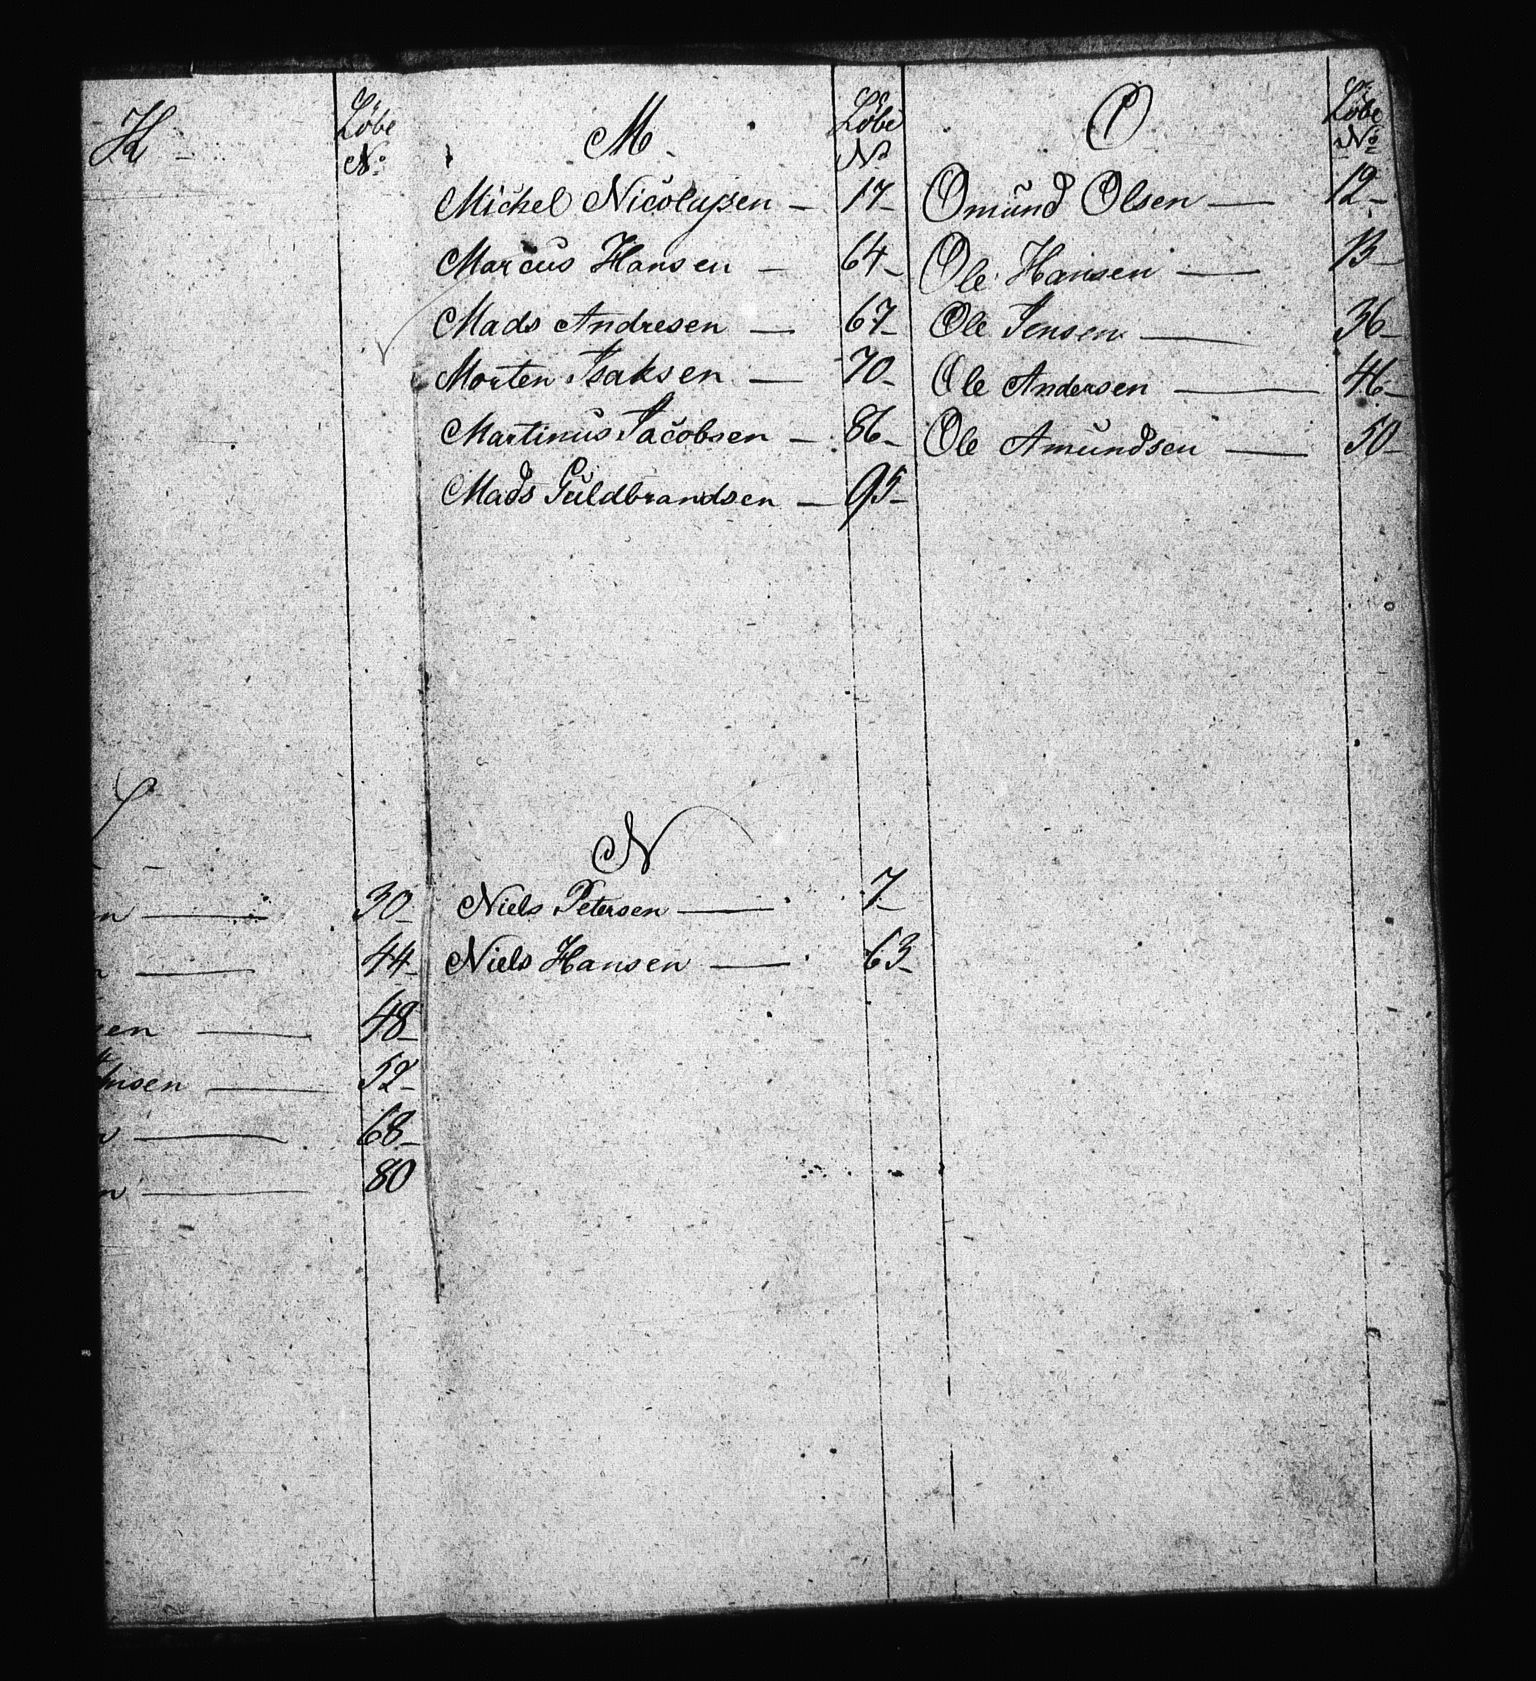 K
Løbe
No
30
44
48
sen
52
68
80
M
Løbe
No
Michel Nicolaysen — 17
Marcus Hansen — 64
Mads Andresen — 67
Morten Isaksen — 70
Martinus Jacobsen — 86
Mads Guldbrandsen — 95
N
Niels Petersen — 7
Niels Hansen — 63
O
Løbe
No
Omund Olsen — 12
Ole Hansen — 13
Ole Jensen — 36
Ole Andersen — 46
Ole Amundsen — 50